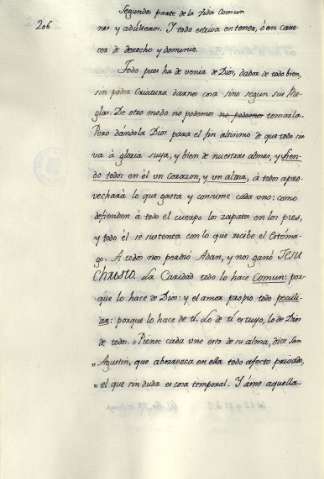 206
Segunda parte de la Vida Comun
nas y adulteros. Y todo estriva en tenér, ó en care-
cer de derecho y dominio.
Todo pues ha de venir de Dios, dador de todo bien,
sin poder Criatura darme cosa sino segun sus Re-
glas. De otro modo no podemos no podemos tomarla.
Pero dandola Dios para el fin altisimo de que todo sir-
va á gloria suya, y bien de nuestras almas, y sien-
do todos en él un corazon, y un alma, á todos apro-
vechará lo que gasta y consume cada uno: como
defienden á todo el cuerpo los zapatos en los pies,
y todo él se sustenta con lo que recibe el Estóma-
go. A todos nos perdio Adan, y nos ganó JESU
CHRISTO. La Caridad todo lo hace Comun: por-
que lo hace de Dios: y el amor propio todo peculi-
ar: porque lo hace de ti. Lo de ti es tuyo, lo de Dios
de todos. Piense cada uno esto de su alma, dice San
" Agustin, que aborrezca en ella todo afecto privado,
" el que sin duda es cosa temporal. Y áme aquella